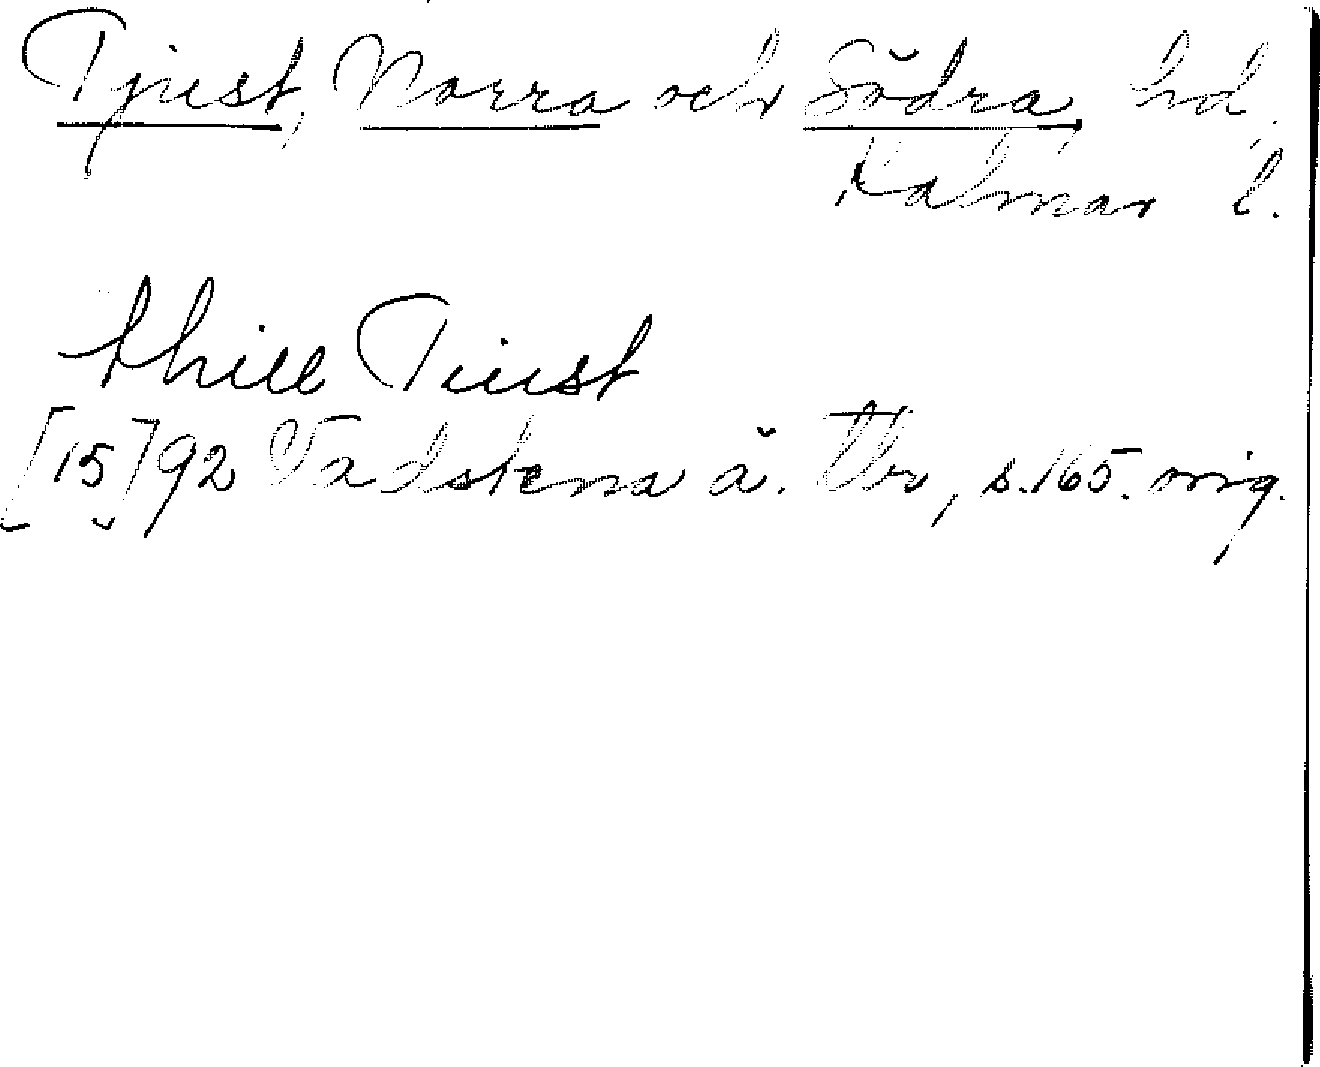 Tjust, Norra och Södra, hd,
Kalmar l.
thill Tiust
[15]92 Vadstena ä. Tbr, s.165. orig.